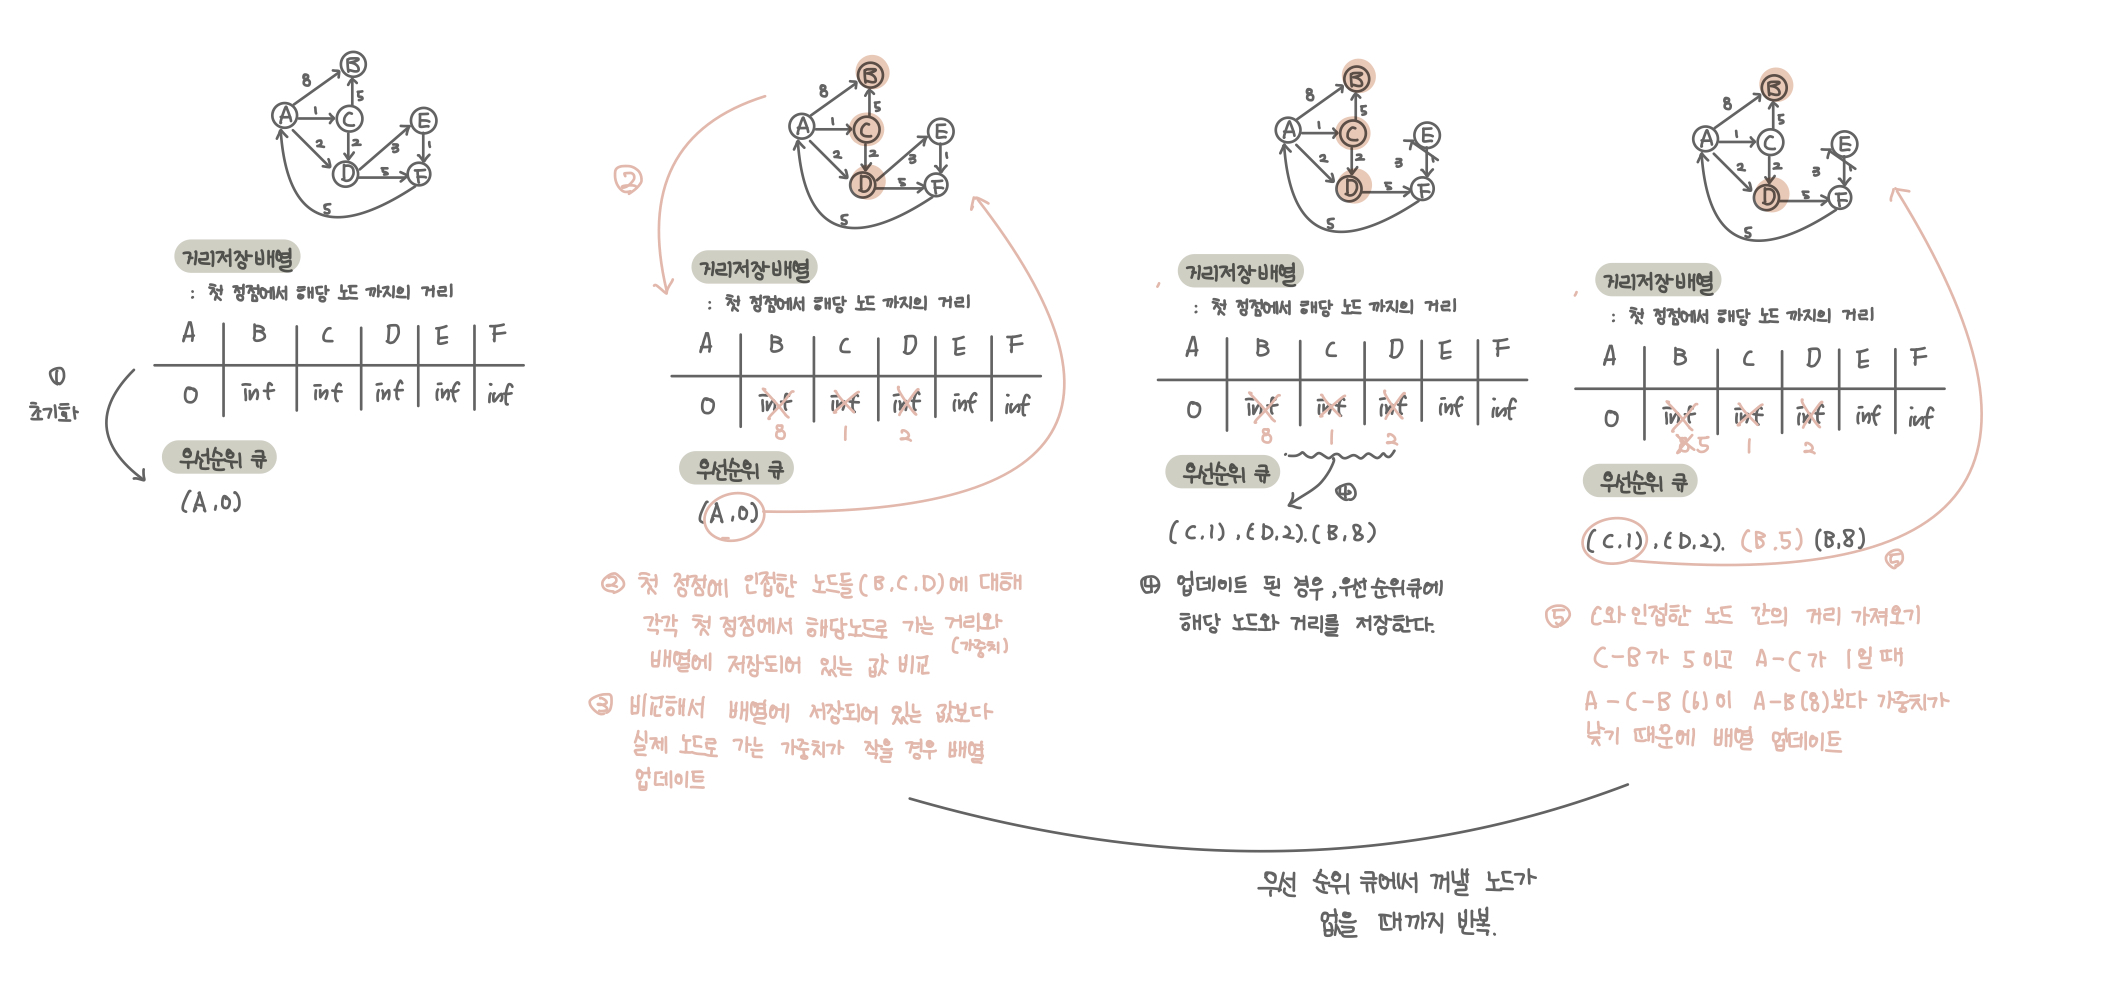 B
8
5
A
1
C
E
2
2
3
1
D
5
F
5
거리저장배열
: 첫 정점에서 해당 노드 까지의 거리
A B C D E F
0 inf inf inf inf inf
①
초기화
우선순위 큐
(A,0)
B
8
5
A
1
C
E
2
2
3
1
D
5
F
5
②
거리저장배열
: 첫 정점에서 해당 노드 까지의 거리
A B C D E F
0 inf inf inf inf inf
8 1 2
우선순위 큐
(A,0)
② 첫 정점에 인접한 노드들(B.C.D)에 대해
각각 첫 정점에서 해당노드로 가는 거리와
(가중치)
배열에 저장되어 있는 값 비교
③ 비교해서 배열에 저장되어 있는 값보다
실제 노드로 가는 가중치가 작을 경우 배열
업데이트
B
8
5
A
1
C
E
2
2
3
1
D
5
F
5
거리저장배열
: 첫 정점에서 해당 노드 까지의 거리
A B C D E F
0 inf inf inf inf inf
8 1 2
우선순위 큐
④
(C.1) ,(D,2).(B,8)
④ 업데이트 된 경우,우선순위큐에
해당 노드와 거리를 저장한다.
B
8
5
A
1
C
E
2
2
3
D
5
F
5
거리저장배열
: 첫 정점에서 해당 노드 까지의 거리
A B C D E F
0 inf inf inf inf inf
8 5 1 2
우선순위 큐
(C.1) ,(D,2). (B.5) (B,8)
⑤
⑤ C와 인접한 노드 간의 거리 가져오기
C-B가 5이고 A-C가 1일 때
A-C-B (6)이 A-B(8)보다 가중치가
낮기 때문에 배열 업데이트
우선 순위 큐에서 꺼낼 노드가
없을 때까지 반복.